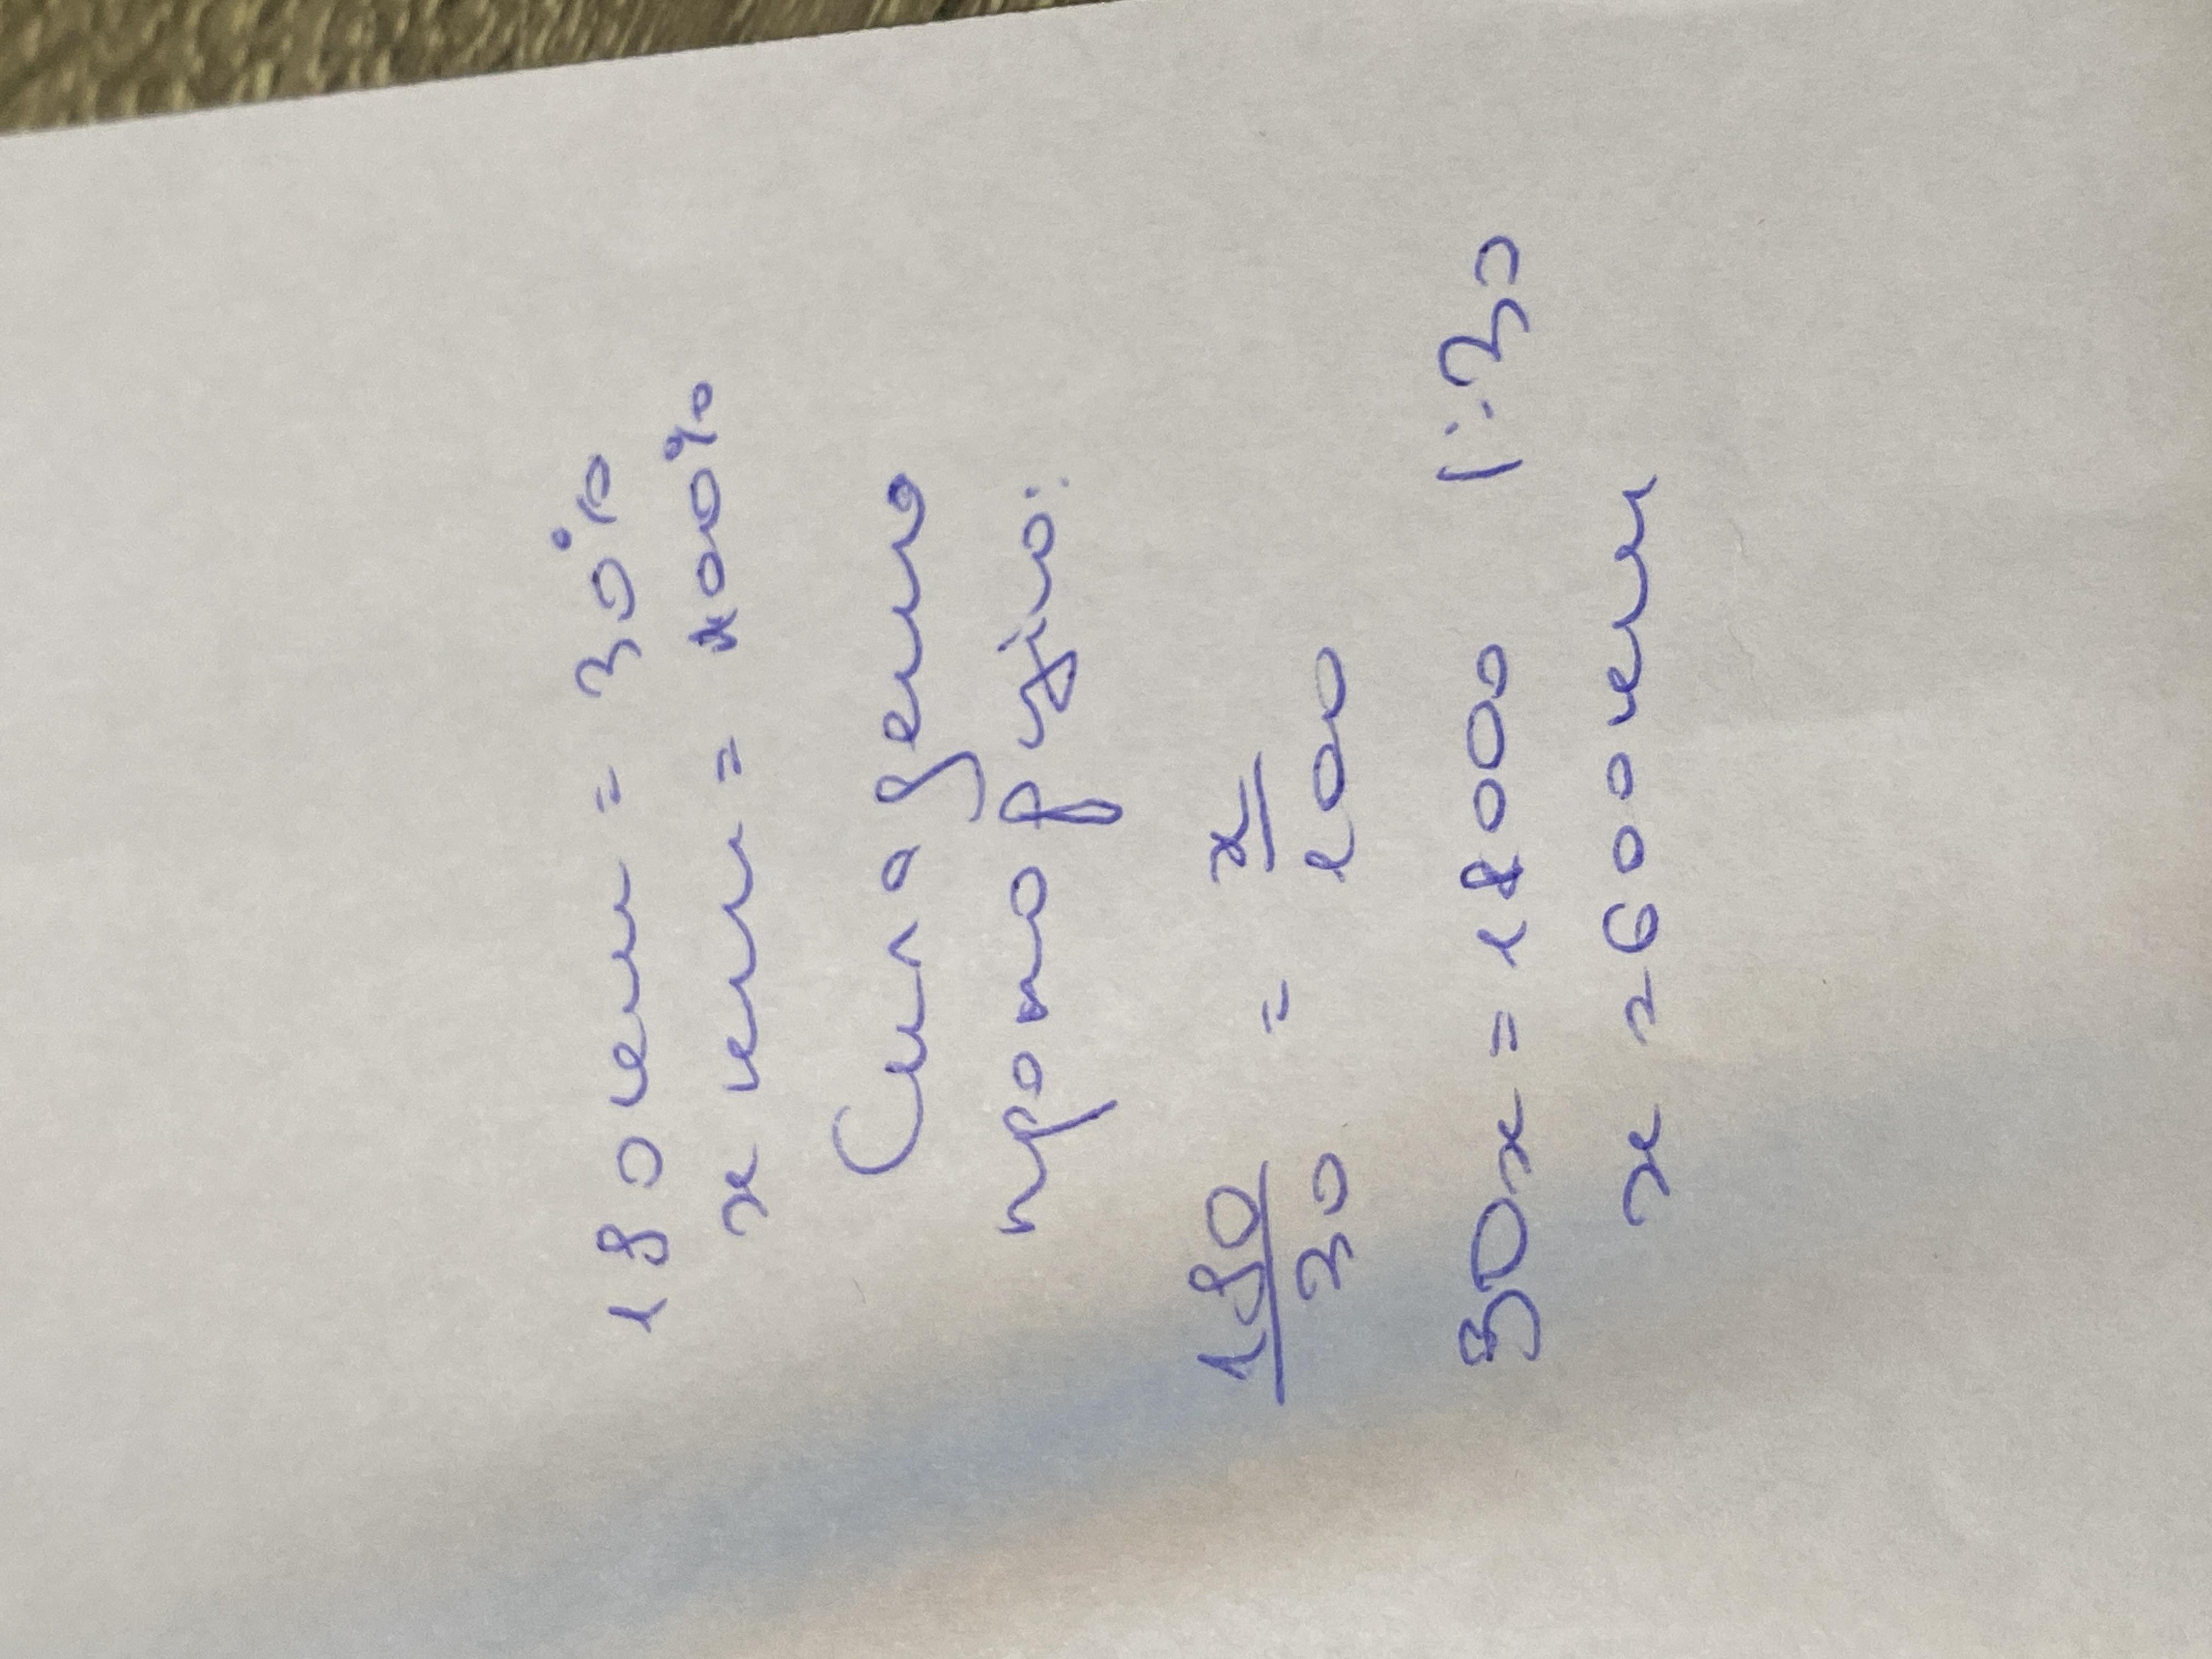 180 км = 30%
x км = 100%
Складемо
пропорцію:
180/30 = x/100
30x = 18000 |:30
x = 600 км